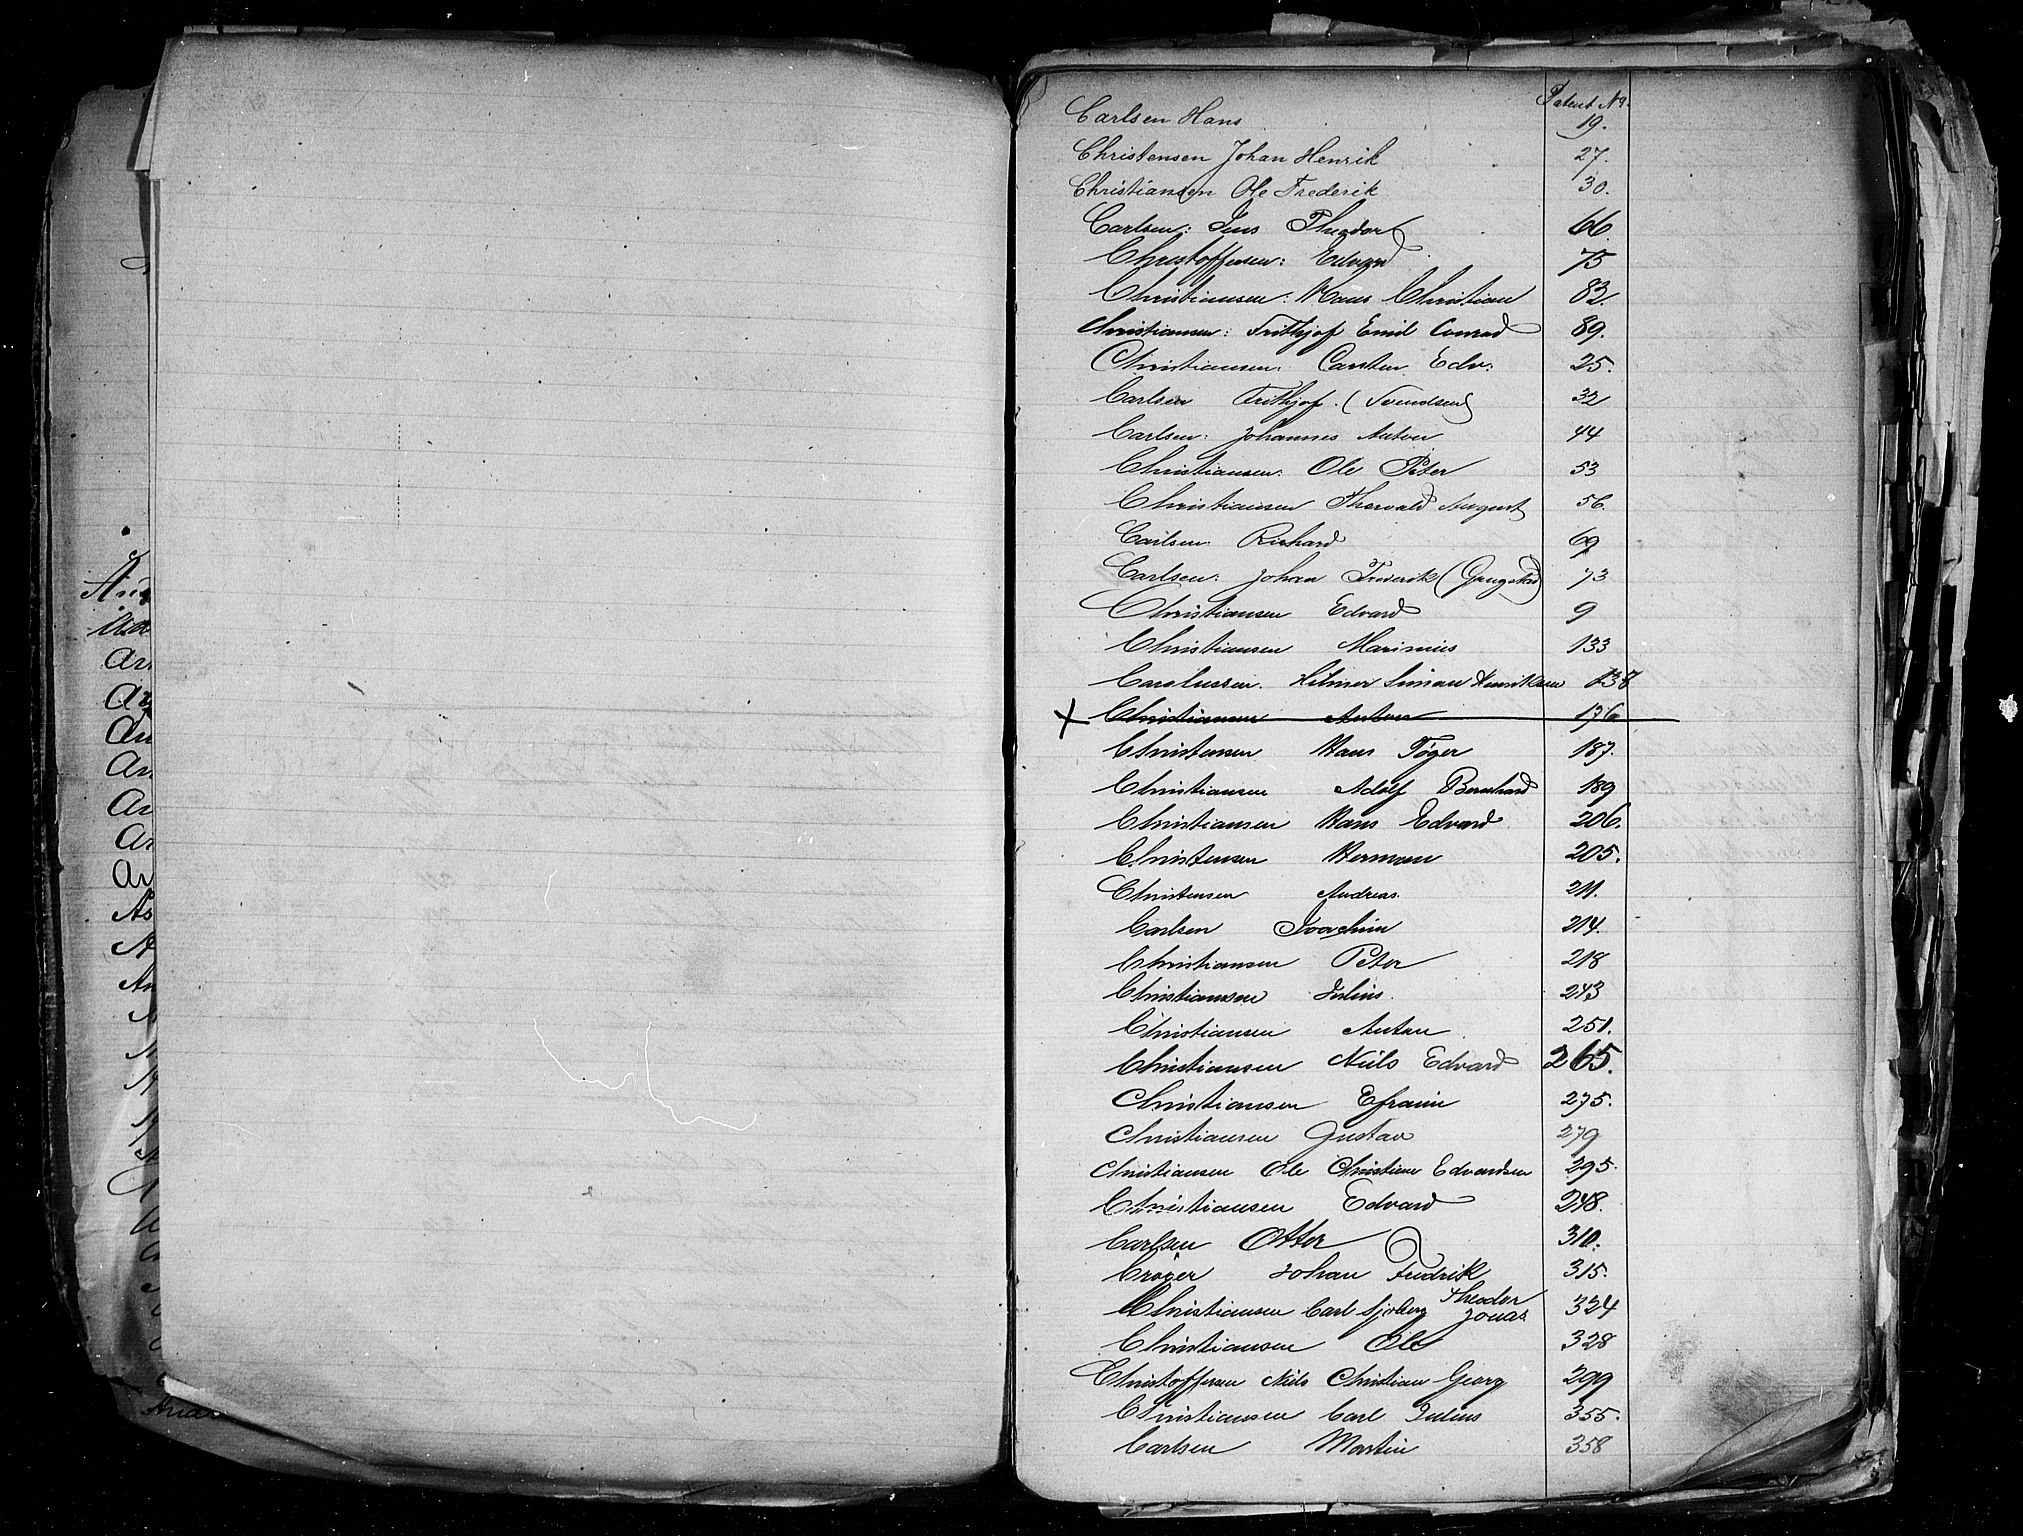 Patent No.
Carlsen Hans 19.
Christensen Johan Henrik 27.
Christiansen Ole Frederik 30.
Carlsen: Jens Theodor 66.
Christoffersen: Edvard 75
Christiansen: Hans Christian 82.
Christiansen: Frithjof Emil Conrad 89.
Christiansen: Carsten Edv: 25.
Carlsen Frithjof. (Svendsen) 32
Carlsen: Johannes Anton 44
Christiansen: Ole Peter 53
Christiansen Thorvald August 56.
Carlsen: Richard 69
Carlsen: Johan Frederik ( 73
Christiansen Edvard 9
Christiansen Marinius 133
Carolussen. Hilmer Simon Henriksen 138
X Christiansen Anton 176
Christensen Hans Tøger 187.
Christiansen Adolf Bernhard 189
Christiansen Hans Edvard 206.
Christensen Herman 205.
Christensen Andreas. 211.
Carlsen Joachim 214.
Christiansen Peter 218
Christiansen Julius. 243
Christiansen Anton 251.
Christiansen Niels Edvard 265.
Christiansen Efraim 275.
Christiansen Gustav 279
Christiansen Ole Christian Edvardsen 295.
Christiansen Edvard 248.
Carlsen Otter 310.
Crøger Johan Fredrik 315.
Christiansen Carl Sjøberg Theodor Jonas 324
Christiansen Ole 328
Christoffersen Niels Christian Georg 299
Christiansen Carl Julius 355.
Carlsen Martin 358